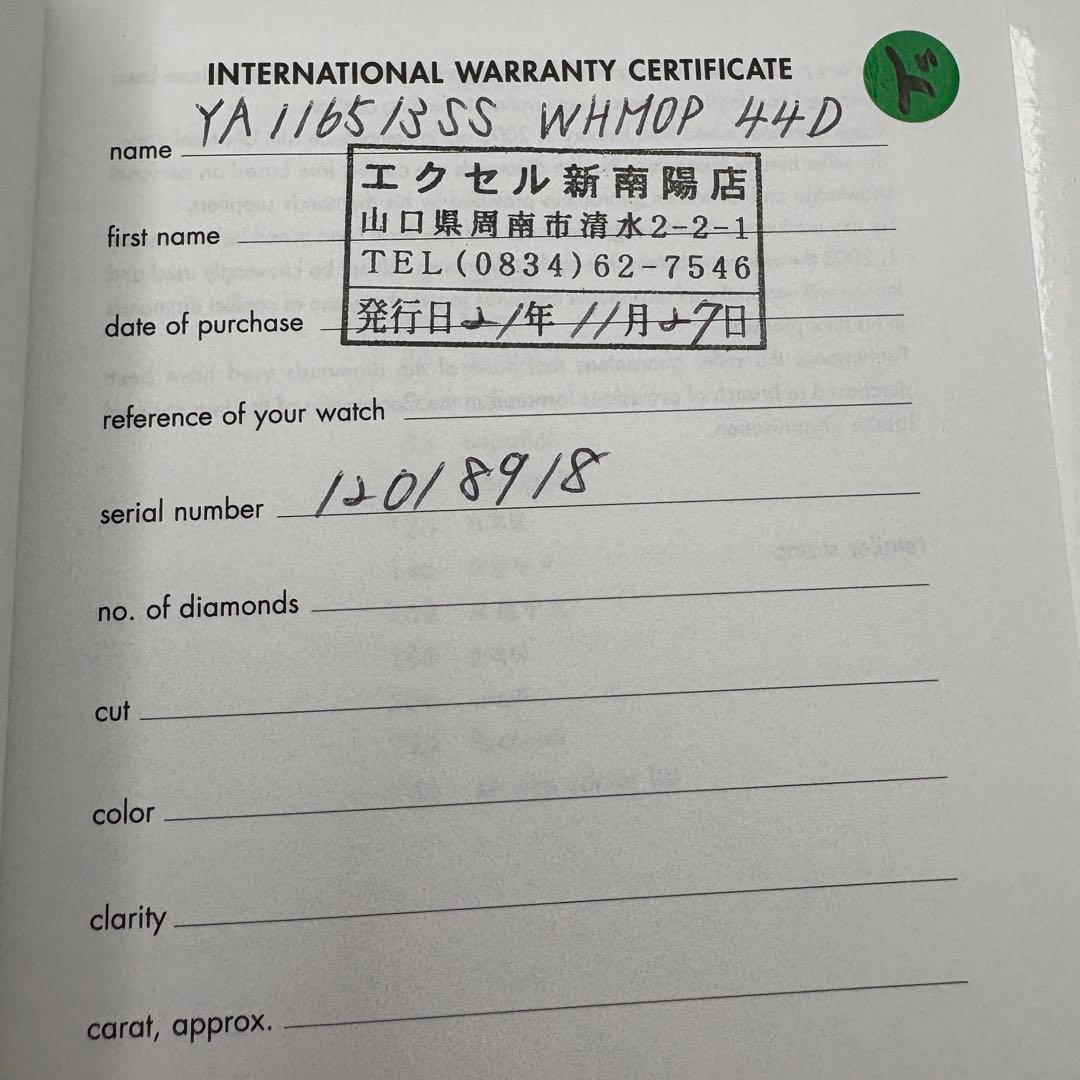 INTERNATIONAL WARRANTY CERTIFICATE
ド
name YA116513SS WHMOP 44D
エクセル新南陽店
山口県周南市清水2-2-1
first name
TEL(0834)62-7546
date of purchase 発行日21年11月27日
reference of your watch
serial number 12018918
no. of diamonds
cut
color
clarity
carat, approx.